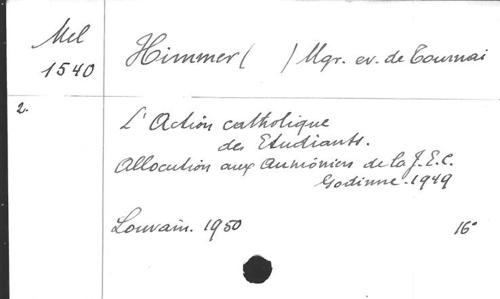 Mel
1540
Himmer ( ) Mgr. ev. de Tournai
2.
L'Action catholique
des Etudiants.
Allocution aux Aumôniers de la J.E.C.
Godinne. 1949
Louvain. 1950
16°